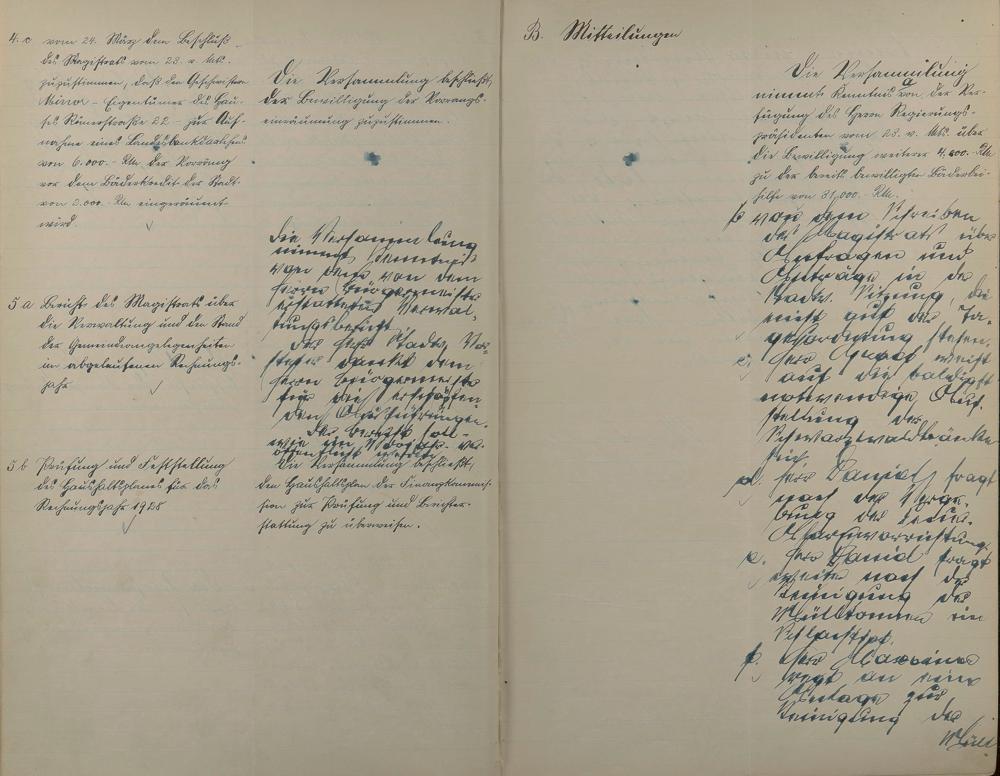 4. c vom 24. März dem Beschluß
des Magistrats vom 23. v. Mts.
zuzustimmen, daß den Geschwistern
Minor - Eigentümer des Hau-
ses Römerstraße 22 - zur Auf-
nahme eines Landesbankdarlehens
von 6.000.- RM der Vorrang
vor dem Bäderkredit der Stadt
von 2.000.- RM eingeräumt
wird.
Die Versammlung beschließt,
der Bewilligung der Vorrangs-
einräumung zuzustimmen.
5 a Bericht des Magistrats über
die Verwaltung und den Stand
der Gemeindeangelegenheiten
im abgelaufenen Rechnungs-
jahr
Die Versammlung
nimmt Kenntnis
von dem von dem
Herrn Bürgermeister
erstatteten Verwal-
tungsbericht.
Der Herr Stadtv. Vor-
steher dankt dem
Herrn Bürgermeister
für die erschöpfen-
den Ausführungen.
Der Bericht soll
wie im Vorjahr ver-
öffentlicht werden.
5 b Prüfung und Feststellung
des Haushaltsplanes für das
Rechnungsjahr 1928
Die Versammlung beschließt,
den Haushaltsplan der Finanzkommis-
sion zur Prüfung und Berichter-
stattung zu überweisen.
B. Mitteilungen
Die Versammlung
nimmt Kenntnis von der Ver-
fügung des Herrn Regierungs-
präsidenten vom 23. v. Mts. über
die Bewilligung weiterer 4.000.- RM
zu der bereits bewilligten Bäderbei-
hilfe von 31.000.- RM.
b von dem Schreiben
des Magistrats über
Anfragen und
Anträge in der
Stadtv. Sitzung, die
nicht auf der Ta-
gesordnung stehen.
c. Herr Graf weist
auf die baldigst
notwendige Auf-
stellung der
Schwarzwaldbänke
hin
d. Herr Daniel fragt
nach der Verge-
bung der
e. Herr David fragt
weiter nach der
Reinigung der
Mülltonnen im
Schlachthof.
f. Herr
regt an eine
Anlage zur
Reinigung der
Müll